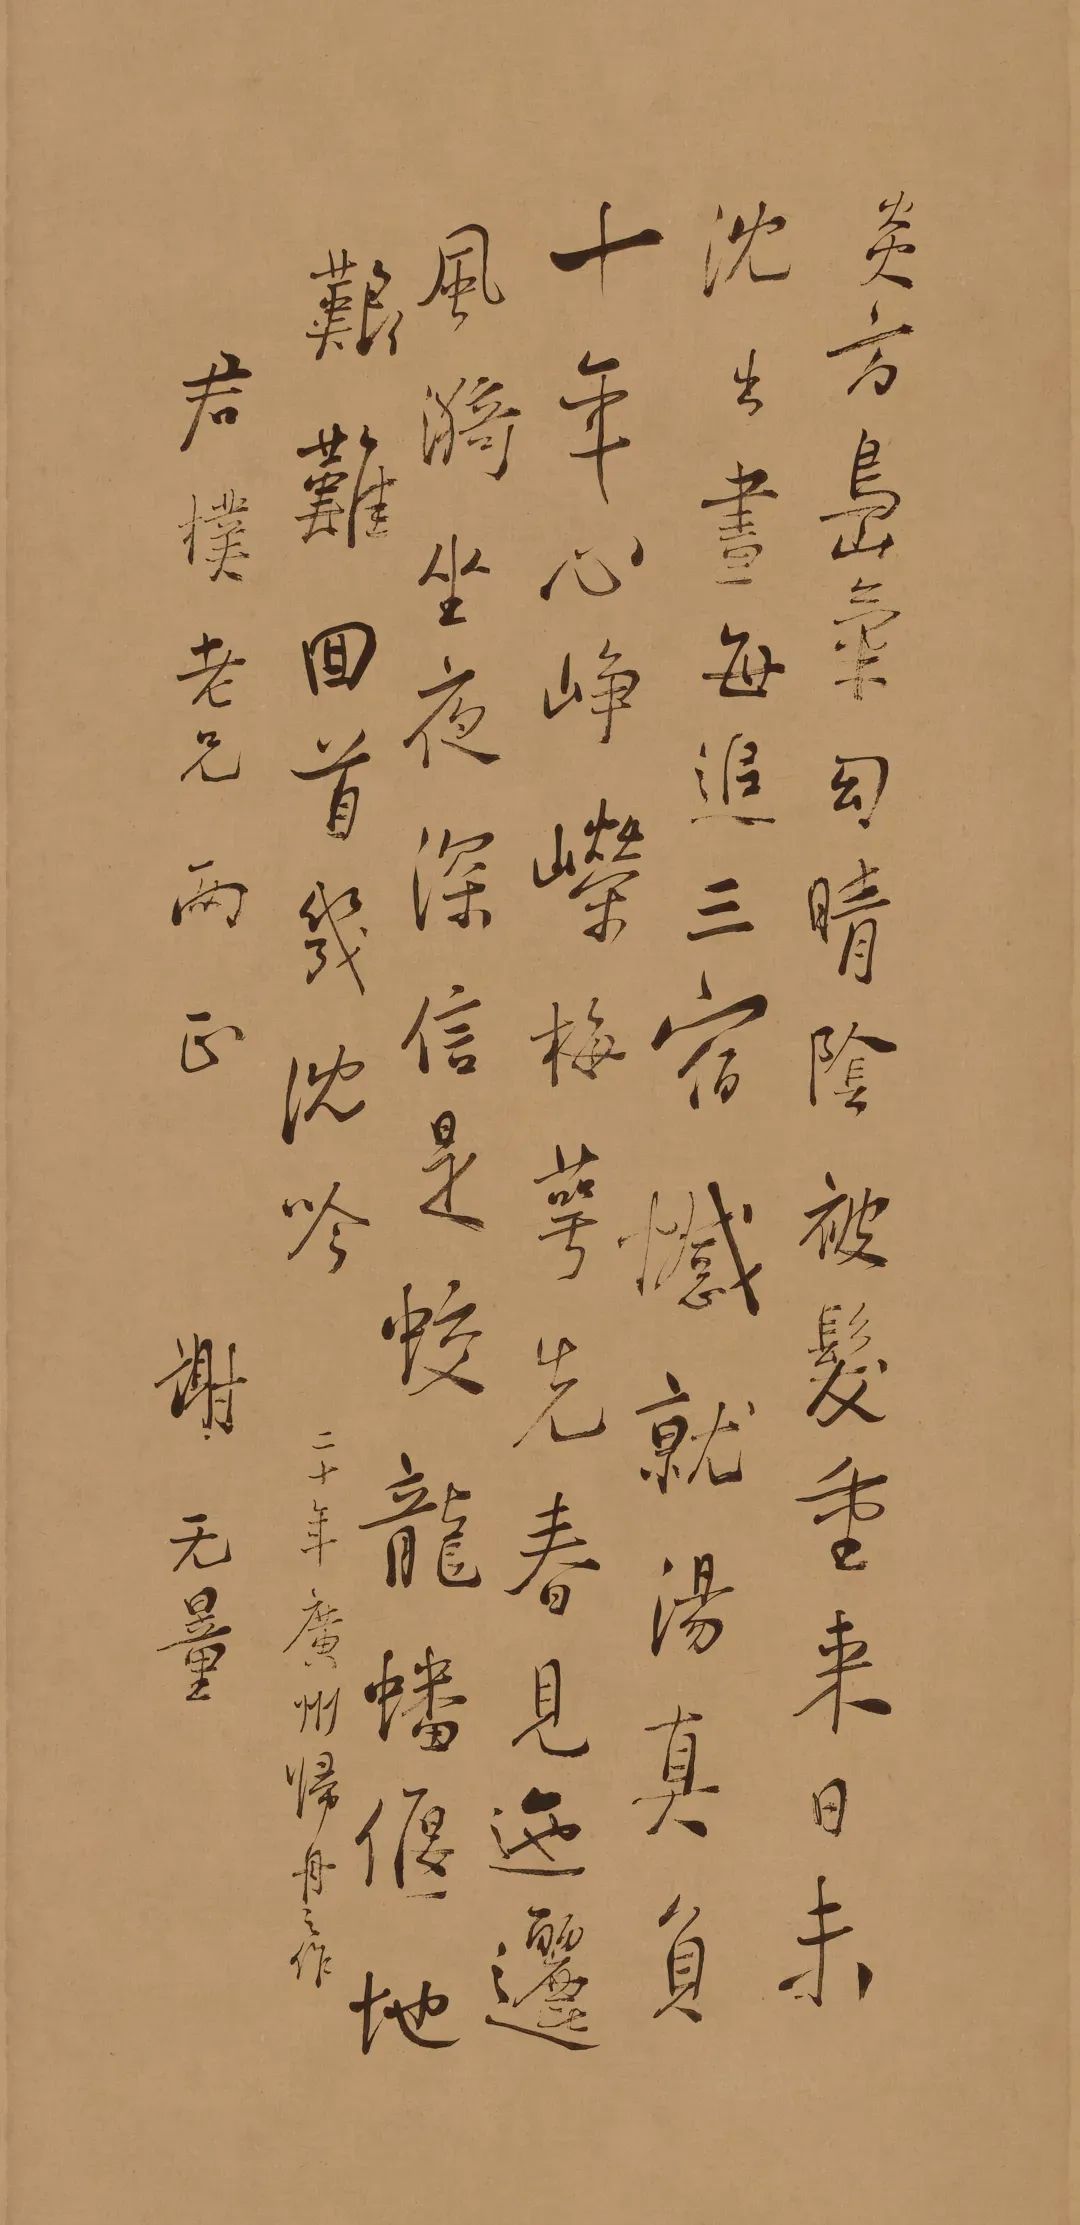 炎方島氣晴陰被髮重來日未
沈出晝每追三宿憾就湯真負
十年心崢嶸梅萼先春見迤邐
風漪坐夜深信是蛟龍蟠偃地
艱難回首幾沈吟
二十年廣州歸舟之作
君樸老兄兩正
謝无量